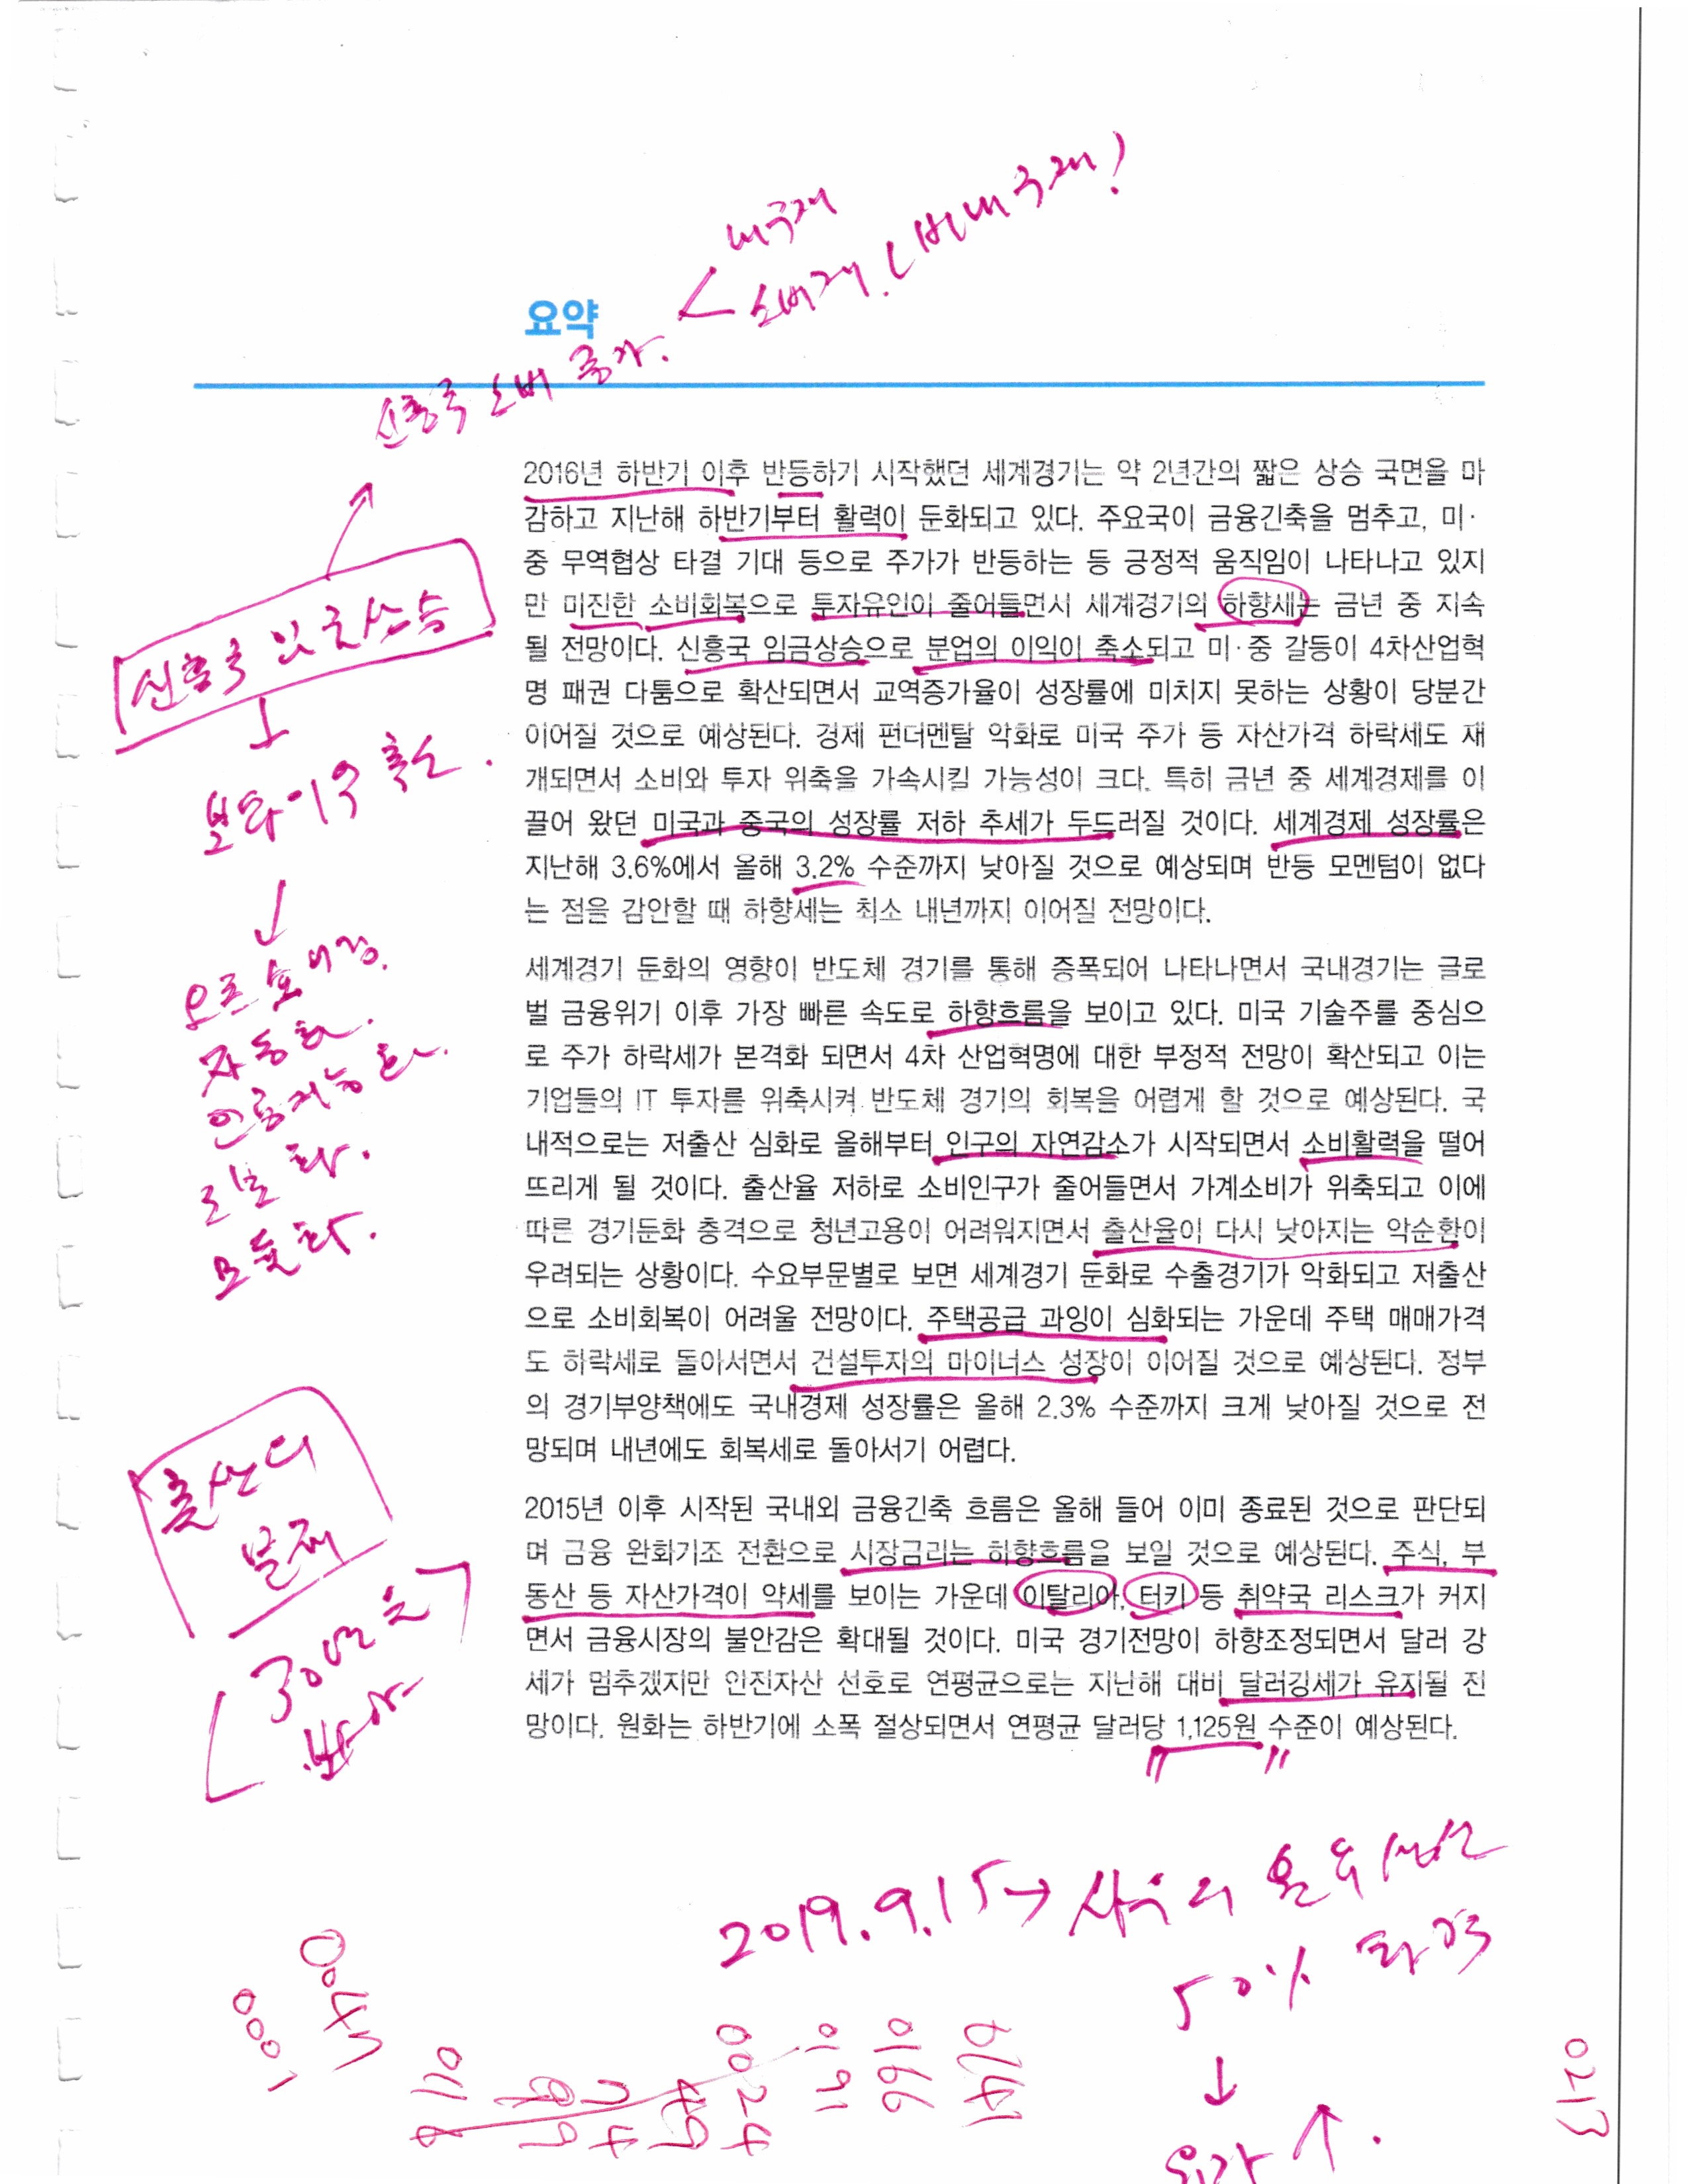 내구재
소비재. (비내구재!
요약
신흥국 소비 증가.
2016년 하반기 이후 반등하기 시작했던 세계경기는 약 2년간의 짧은 상승 국면을 마
감하고 지난해 하반기부터 활력이 둔화되고 있다. 주요국이 금융긴축을 멈추고, 미·
중 무역협상 타결 기대 등으로 주가가 반등하는 등 긍정적 움직임이 나타나고 있지
만 미진한 소비회복으로 투자유인이 줄어들면서 세계경기의 하향세는 금년 중 지속
될 전망이다. 신흥국 임금상승으로 분업의 이익이 축소되고 미·중 갈등이 4차산업혁
명 패권 다툼으로 확산되면서 교역증가율이 성장률에 미치지 못하는 상황이 당분간
이어질 것으로 예상된다. 경제 펀더멘탈 악화로 미국 주가 등 자산가격 하락세도 재
개되면서 소비와 투자 위축을 가속시킬 가능성이 크다. 특히 금년 중 세계경제를 이
끌어 왔던 미국과 중국의 성장률 저하 추세가 두드러질 것이다. 세계경제 성장률은
지난해 3.6%에서 올해 3.2% 수준까지 낮아질 것으로 예상되며 반등 모멘텀이 없다
는 점을 감안할 때 하향세는 최소 내년까지 이어질 전망이다.
신흥국 임금상승
축소.
자동화.
인공지능화.
로봇화.
세계경기 둔화의 영향이 반도체 경기를 통해 증폭되어 나타나면서 국내경기는 글로
벌 금융위기 이후 가장 빠른 속도로 하향흐름을 보이고 있다. 미국 기술주를 중심으
로 주가 하락세가 본격화 되면서 4차 산업혁명에 대한 부정적 전망이 확산되고 이는
기업들의 IT 투자를 위축시켜 반도체 경기의 회복을 어렵게 할 것으로 예상된다. 국
내적으로는 저출산 심화로 올해부터 인구의 자연감소가 시작되면서 소비활력을 떨어
뜨리게 될 것이다. 출산율 저하로 소비인구가 줄어들면서 가계소비가 위축되고 이에
따른 경기둔화 충격으로 청년고용이 어려워지면서 출산율이 다시 낮아지는 악순환이
우려되는 상황이다. 수요부문별로 보면 세계경기 둔화로 수출경기가 악화되고 저출산
으로 소비회복이 어려울 전망이다. 주택공급 과잉이 심화되는 가운데 주택 매매가격
도 하락세로 돌아서면서 건설투자의 마이너스 성장이 이어질 것으로 예상된다. 정부
의 경기부양책에도 국내경제 성장률은 올해 2.3% 수준까지 크게 낮아질 것으로 전
망되며 내년에도 회복세로 돌아서기 어렵다.
출산의
문제
2015년 이후 시작된 국내외 금융긴축 흐름은 올해 들어 이미 종료된 것으로 판단되
며 금융 완화기조 전환으로 시장금리는 하향흐름을 보일 것으로 예상된다. 주식, 부
동산 등 자산가격이 약세를 보이는 가운데 이탈리아, 터키 등 취약국 리스크가 커지
면서 금융시장의 불안감은 확대될 것이다. 미국 경기전망이 하향조정되면서 달러 강
세가 멈추겠지만 안전자산 선호로 연평균으로는 지난해 대비 달러강세가 유지될 전
망이다. 원화는 하반기에 소폭 절상되면서 연평균 달러당 1,125원 수준이 예상된다.
2019.9.15→ 사우디 
50% 타격
↓
유가 ↑.
0001
0024
0191
0166
0213